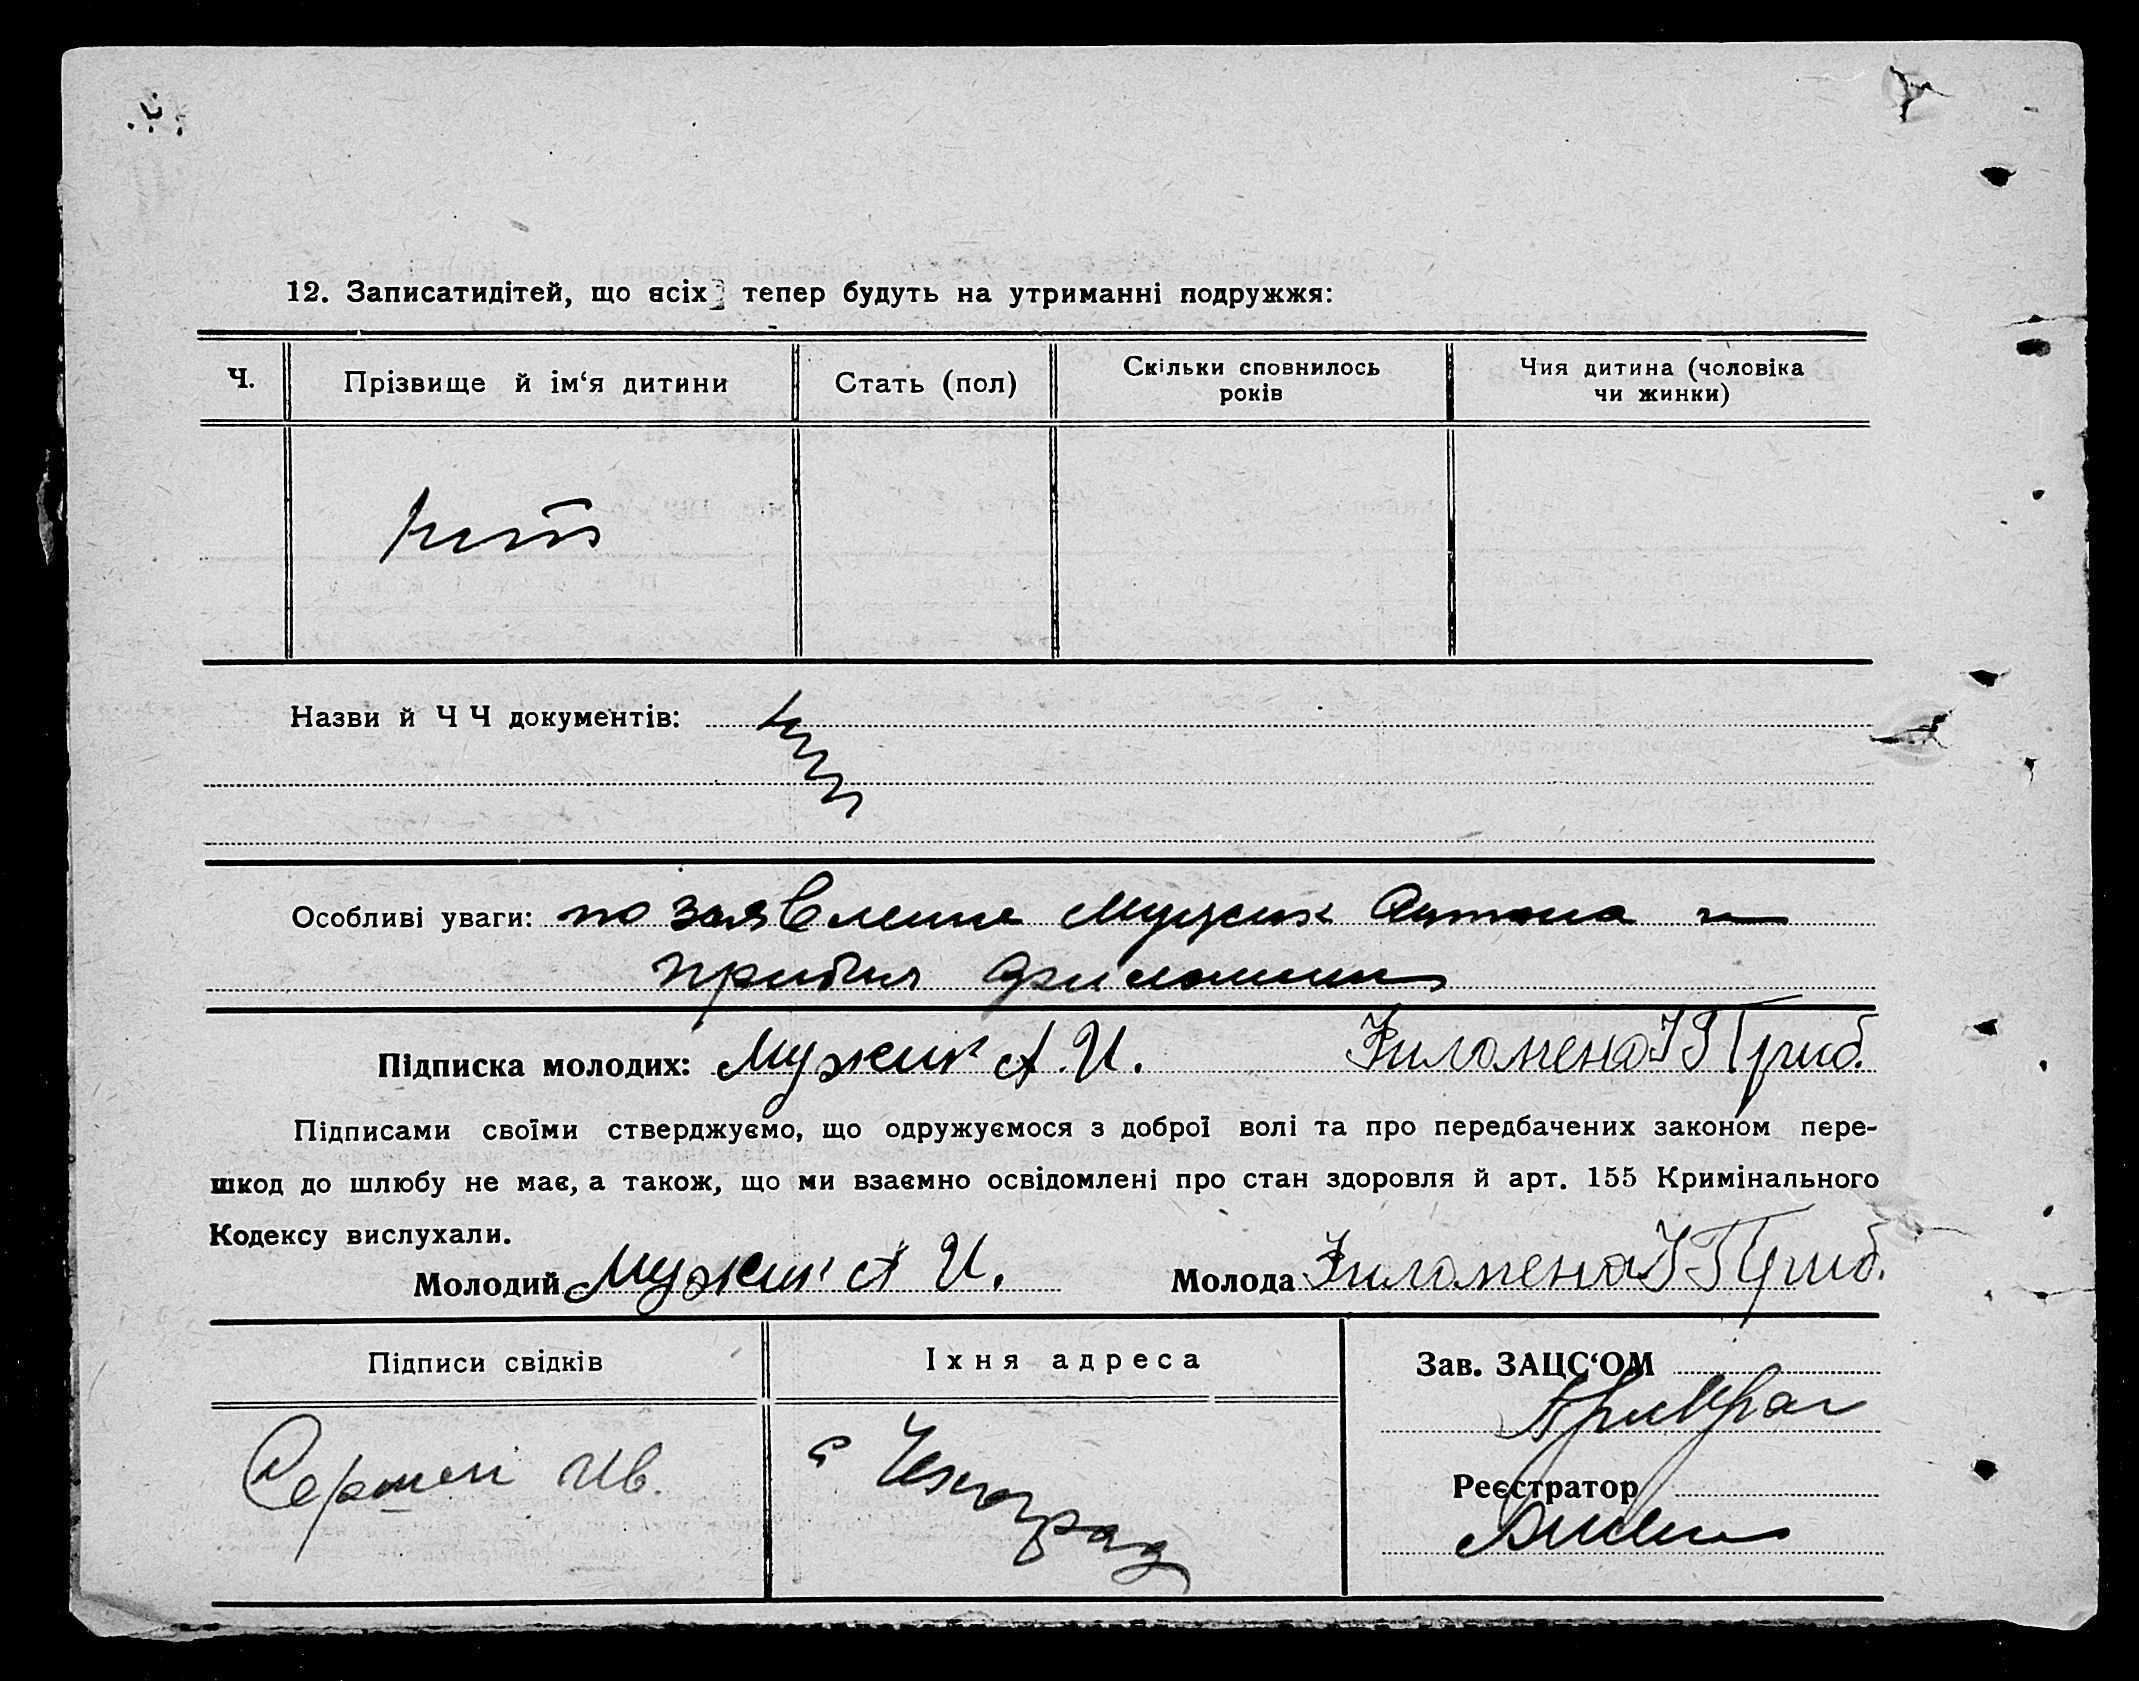 12. Записатидітей, що всіх тепер будуть на утриманні подружжя:
Ч.
Прізвище й ім‘я дитини
Стать (пол)
Скільки сповнилось
років
Чия дитина (чоловіка
чи жинки)
нет
Назви й Ч Ч документів:
Особливі уваги: по заявление Мужик Антона и
Филомены
Підписка молодих: Мужик А. И. Филомена Гриб.
Підписами своїми стверджуємо, що одружуємося з доброї волі та про передбачених законом пере-
шкод до шлюбу не має, а також, що ми взаємно освідомлені про стан здоровля й арт. 155 Кримінального
Кодексу вислухали.
Молодий Мужик А И. Молода Филомена Гриб.
Підписи свідків
Іхня адреса
Зав. ЗАЦС‘ОМ
Ив.
с
Реєстратор